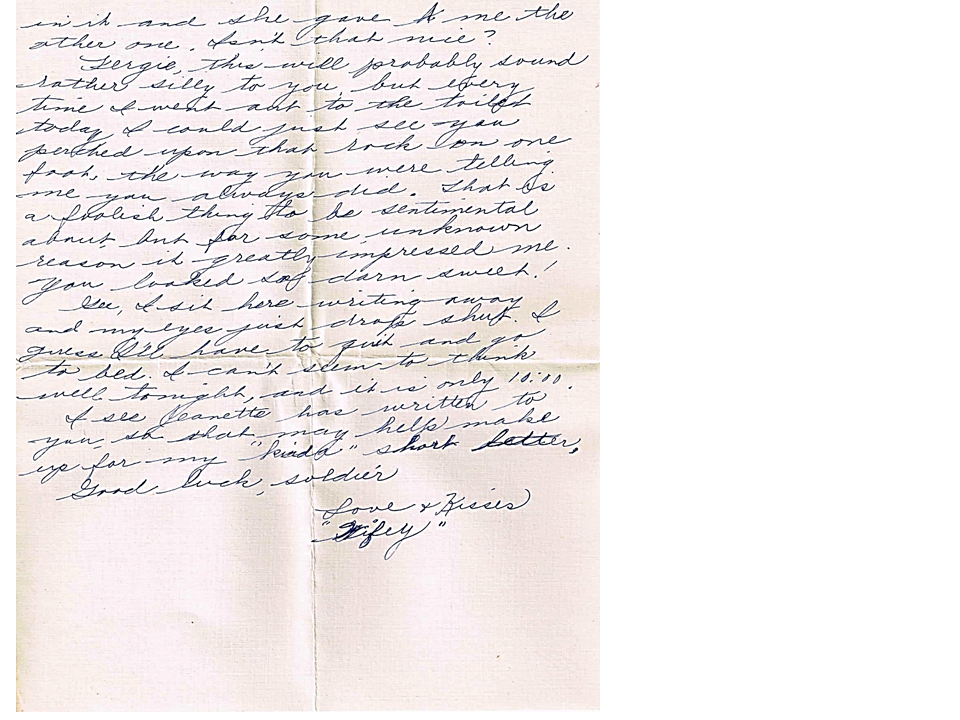 in it and she gave me the
other one. Isn't that nice?
Fergie, this will probably sound
rather silly to you, but every
time I went out to the toilet
today I could just see you
perched upon that rock on one
foot, the way you were telling
me you always did. That is
a foolish thing to be sentimental
about, but for some unknown
reason it greatly impressed me.
You looked so darn sweet!
Gee, I sit here writing away
and my eyes just drop shut. I
guess I'll have to quit and go
to bed. I can't seem to think
well tonight, and it is only 10:00.
I see Jeanette has written to
you, so that may help make
up for my "kinda" short letter,
Good luck, soldier
Love & Kisses
"Wifey"